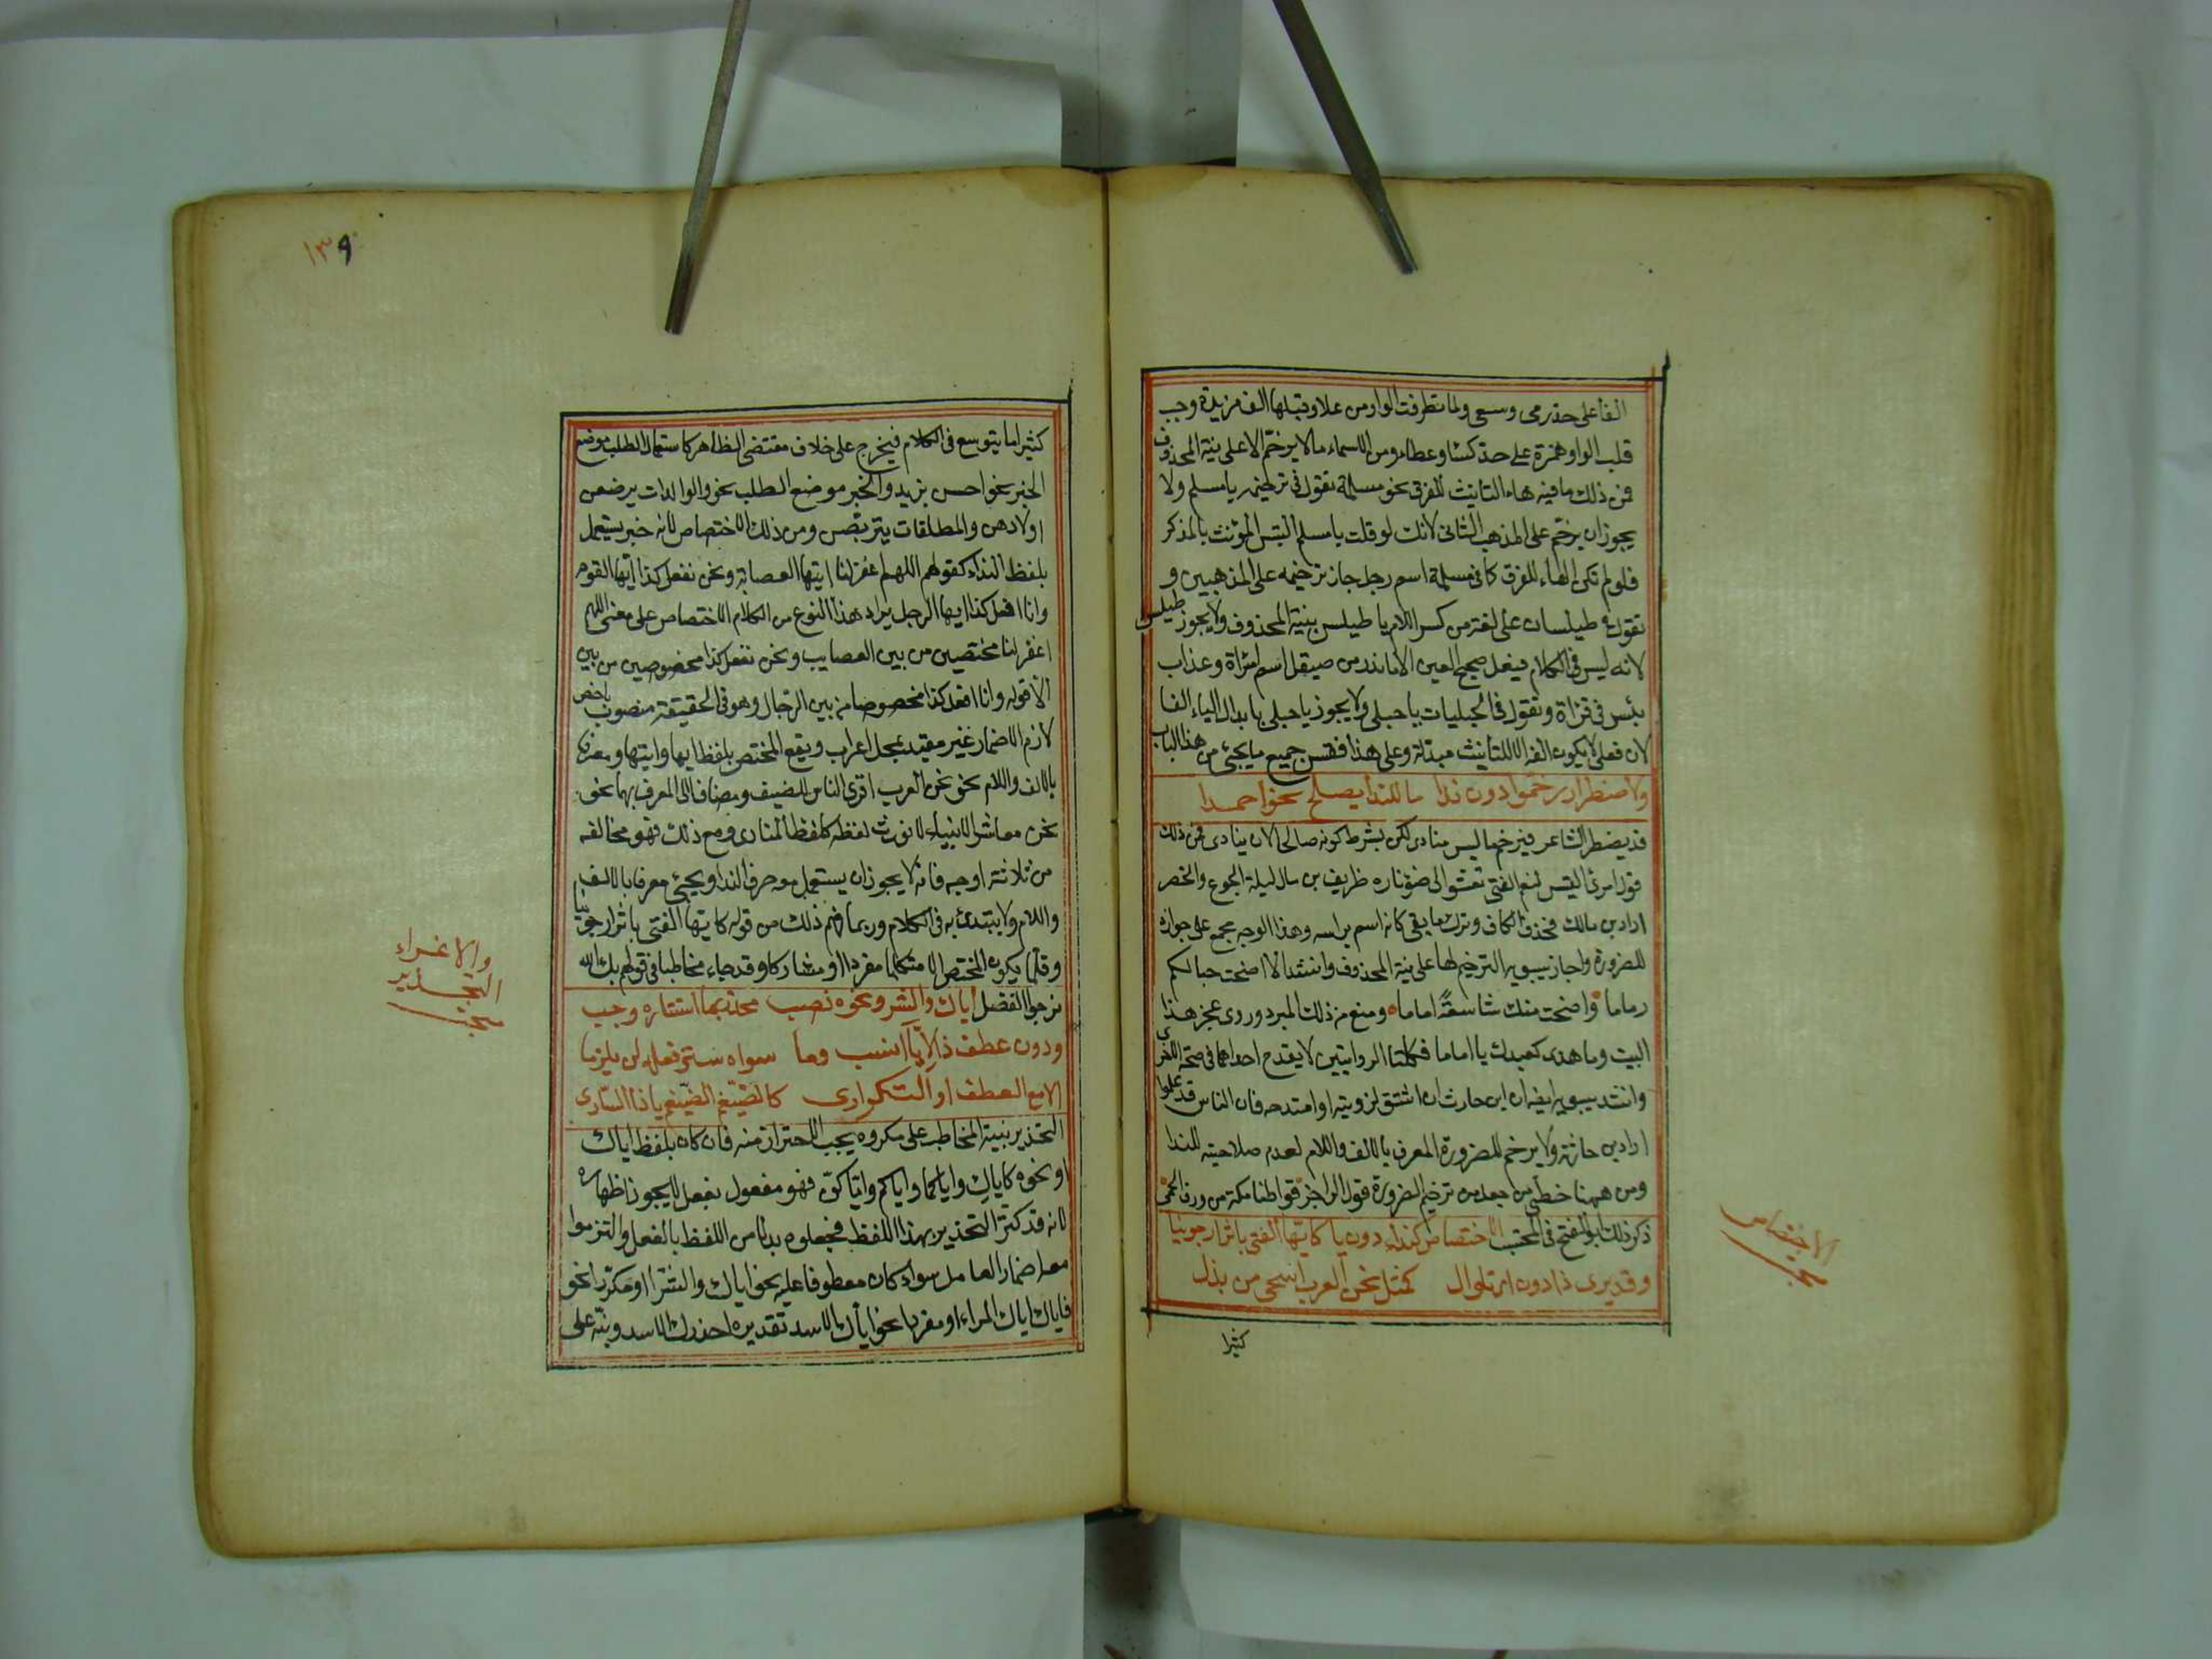 الفا على حد رمى وسعى ولما تطرفت الواو من علاو وقبلها الف مزيدة وجب
قلب الواو همزة على حد كساء وعطاء ومن الاسماء ما لا يرخم الا على نية المحذوف
فمن ذلك ما فيه هاء التانيث للفرق نحو مسلمة تقول فى ترخيمه يا مسلم ولا
يجوز ان يرخم على المذهب الثانى لانك لو قلت يا مسلم التبس المؤنث بالمذكر
فلو لم تكن الهاء للفرق كما فى مسلمة اسم رجل جاز ترخيمه على المذهبين و
تقول فى طيلسان على لغة من كسر اللام يا طيلس بنية المحذوف ولا يجوز طيلس
لانه ليس فى الكلام فيعل صحيح العين الا ما ندر من صيقل اسم امراة وعذاب
بئس فى قراة وتقول فى حبليات يا حبلى ولا يجوز يا حبلى بابدال الياء الفا
لان فعلى لا يكون الفه الا للتانيث مبدلة وعلى هذا فقس جميع ما يجئ من هذا الباب
ولاضطرار رخموا دون ندا ما للندا يصلح نحو احمدا
قد يضطر الشاعر فيرخم ما ليس منادى لكن بشرط كونه صالحا لان ينادى فمن ذلك
قول امرئ القيس لنعم الفتى تعشو الى ضوء ناره طريف بن مال ليلة الجوع والخصر
اراد بن مالك فحذف الكاف وترك ما بقى كانه اسم براسه وهذا الوجه مجمع على جوازه
للضرورة واجاز سيبويه الترخيم لها على نية المحذوف وانشد الا اضحت حبالكم
رماما واضحت منك شاسعة اماما ومنع من ذلك المبرد وروى عجز هذا
البيت وما عهدى كعهدك يا اماما فكلتا الروايتين لا يقدح احداهما فى صحة الاخرى
وانشد سيبويه ايضا ان ابن حارث ان اشتق لرؤيته او امتدحه فان الناس قد علموا
اراد بن حارثة ولا يرخم للضرورة المعرف بالالف واللام لعدم صلاحيته للندا
ومن ههنا خطئ من جعل من ترخيم الضرورة قول الراجز قواطنا مكة من ورق الحمى
ذكر ذلك ابو الفتح فى المحتسب الاختصاص كنداء دون يا كايها الفتى باثر ارجونيا
وقد يرى ذا دون اى تلو ال كمثل نحن العرب اسخى من بذل
كثيرا
الاختصاص
١٣٩
كثيرا ما يتوسع فى الكلام فيخرج على خلاف مقتضى الظاهر كاستعمال الطلب موضع
الخبر نحو احسن بزيد والخبر موضع الطلب نحو والوالدات يرضعن
اولادهن والمطلقات يتربصن ومن ذلك الاختصاص لانه خبر يستعمل
بلفظ النداء كقولهم اللهم اغفر لنا ايتها العصابة ونحن نفعل كذا ايها القوم
وانا افعل كذا ايها الرجل يراد هذا النوع من الكلام الاختصاص على معنى اللهم
اغفر لنا مختصين من بين العصايب ونحن نفعل كذا مخصوصين من بين
الاقوام وانا افعل كذا مخصوصا من بين الرجال وهو فى الحقيقة منصوب باخص
لازم الاضمار غير مقيد بمحل اعراب ويقع المختص بلفظ ايها وايتها ومعرفا
بالالف واللام نحو نحن العرب اقرى الناس للضيف ومضافا الى المعرف بهما نحو
نحن معاشر الانبياء لا نورث لفظه كلفظ المنادى ومع ذلك فهو مخالفه
من ثلاثة اوجه فانه لا يجوز ان يستعمل معه حرف النداء ويجئ معرفا بالالف
واللام ولا يبتدئ به فى الكلام وربما فهم ذلك من قوله كايها الفتى باثر ارجونيا
وقلما يكون المختص الا متكلما مفردا او مشاركا وقد جاء مخاطبا فى قولهم بك الله
نرجوا الفضل اياك والشر ونحوه نصب محذر بما استتاره وجب
ودون عطف ذا لايا انسب وما سواه ستر فعله لن يلزما
الا مع العطف او التكرار كالضيغم الضيغم يا ذا السارى
التحذير تنبيه المخاطب على مكروه يجب الاحتراز منه فان كان بلفظ اياك
او نحوه كاياك واياكما واياكم واياكن فهو مفعول بفعل لا يجوز اظهاره
لانه قد كثر التحذير بهذا اللفظ فجعلوه بدلا من اللفظ بالفعل والتزموا
معه اضمار العامل سواء كان معطوفا عليه نحو اياك والشر او مكررا نحو
فاياك اياك المراء او مفردا نحو اياك الاسد تقديره احذرك الاسد ونبه على
والاغراء
التحذير